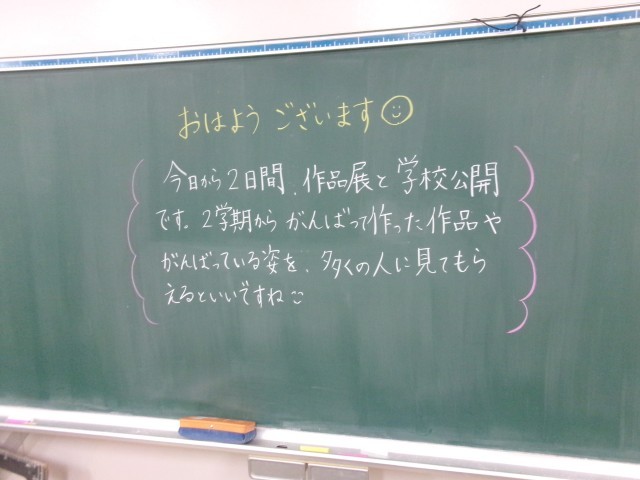 おはよう ございます
今日から2日間、作品展と学校公開
です。2学期からがんばって作った作品や
がんばっている姿を、多くの人に見てもら
えるといいですね